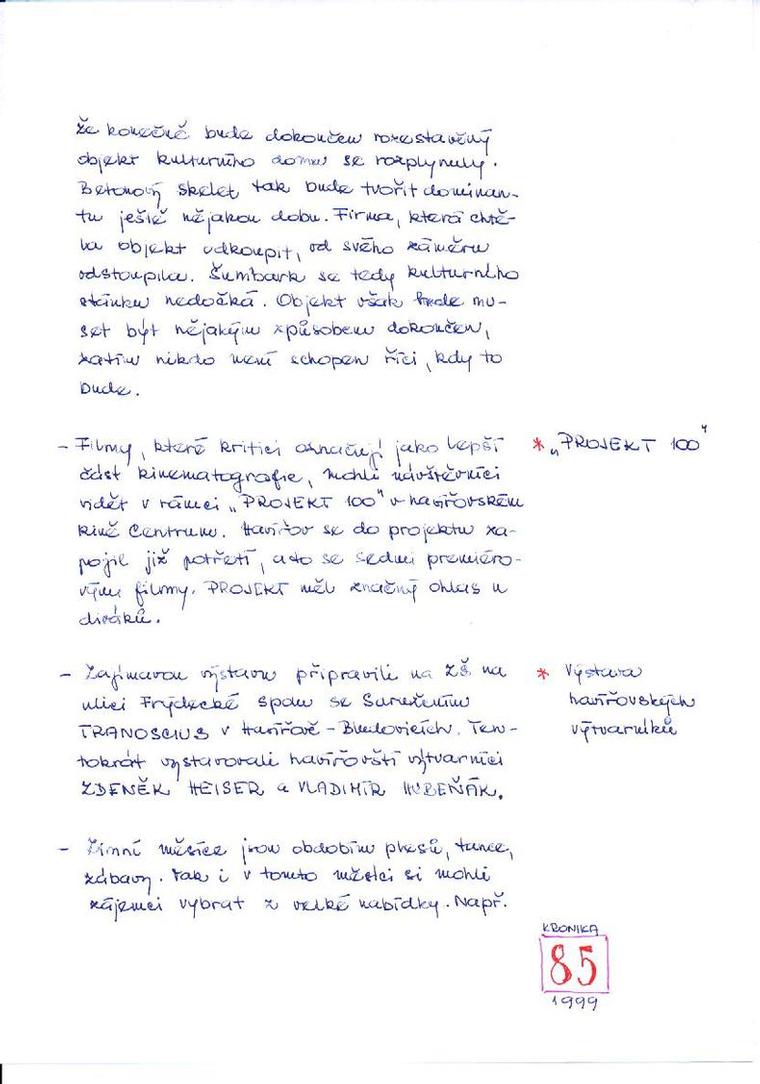 že konečně bude dokončen rozestavěný
objekt kulturního domu se rozplynuly.
Betonový skelet tak bude tvořit dominan-
tu ještě nějakou dobu. Firma, která chtě-
la objekt odkoupit, od svého záměru
odstoupila. Šumbark se tedy kulturního
stánku nedočká. Objekt však bude mu-
set být nějakým způsobem dokončen,
zatím nikdo není schopen říci, kdy to
bude.
- Filmy, které kritici označují jako lepší
část kinematografie, mohli návštěvníci
vidět v rámci „PROJEKT 100" v havířovském
kině Centrum. Havířov se do projektu za-
pojil již potřetí, a to se sedmi premiéro-
vými filmy. PROJEKT měl značný ohlas u
diváků.
* „PROJEKT 100"
- Zajímavou výstavu připravili na ZŠ na
ulici Frýdecké spolu se Sdružením
TRANOSCIUS v Havířově - Bludovicích. Ten-
tokrát vystavovali havířovští výtvarníci
ZDENĚK HEISER a VLADIMÍR HUBEŇÁK.
* Výstava
havířovských
výtvarníků
- Zimní měsíce jsou obdobím plesů, tance,
zábavy. Tak i v tomto měsíci si mohli
zájemci vybrat z velké nabídky. Např.
KRONIKA
85
1999